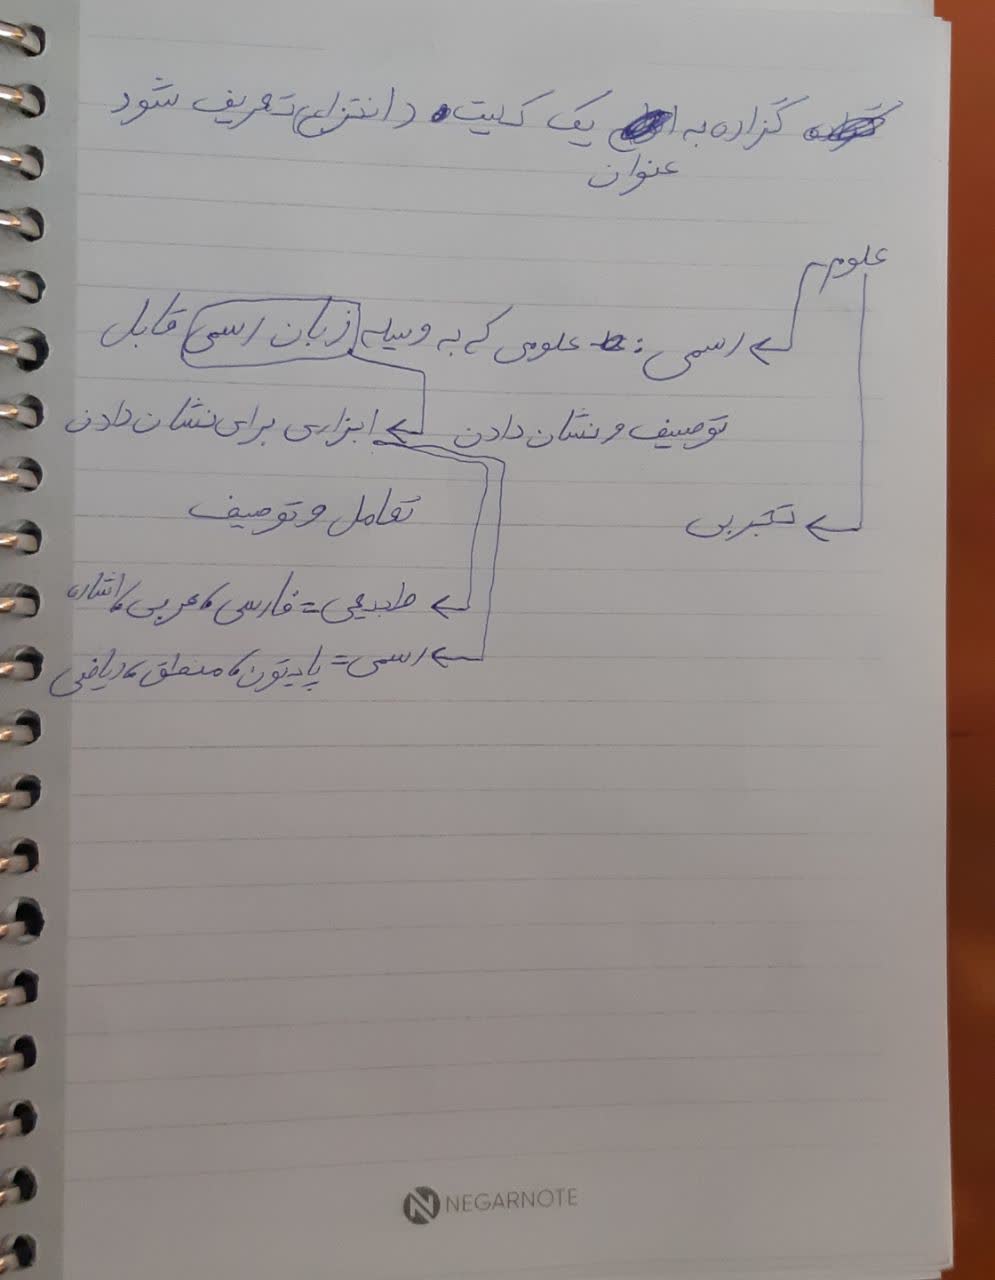 گزاره به یک کلیت و انتزاعی تعریف شود
عنوان
علوم
رسمی: علومی که به وسیله زبان رسمی قابل
توصیف و نشان دادن
ابزاری برای نشان دادن
تعامل و توصیف
تجربی
طبیعی = فارسی، عربی، اشاره
رسمی = پایتون، منطق، ریاضی
NEGARNOTE